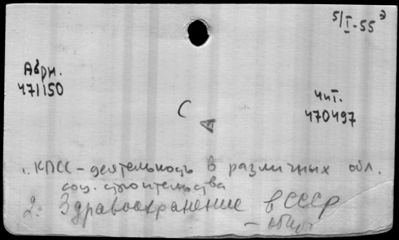 5/I-55 г
Абрн.
471150
С
чит.
470497
1. КПСС - деятельность в различных обл.
соц. строительства
2. Здравоохранение в СССР